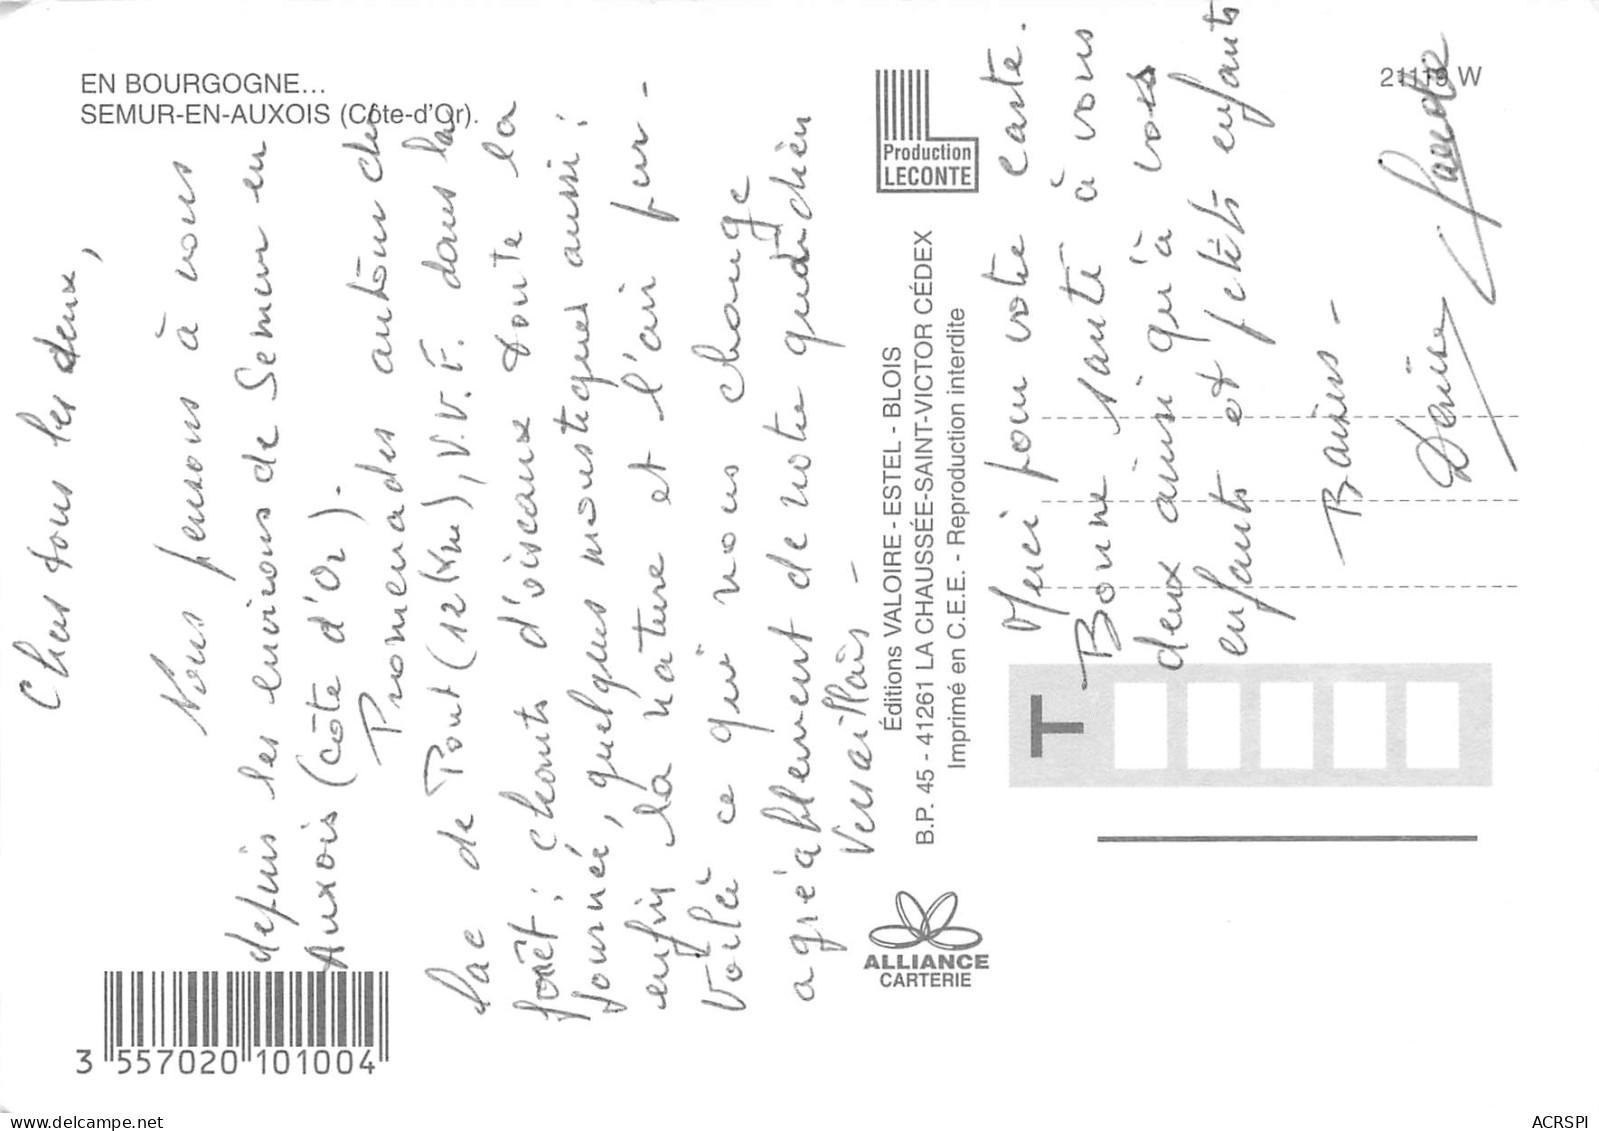 EN BOURGOGNE...
SEMUR-EN-AUXOIS (Côte-d'Or).
21/119 W
Chers tous les deux,
Nous pensons à vous
depuis les environs de Semur en
Auxois (côte d'Or).
Promenades autour du
lac de Pont (12 Km), V.V.F. dans la
forêt : chants d'oiseaux toute la
journée, quelques moustiques aussi !
enfin la nature et l'air pur -
Voilà ce qui nous change
agréablement de notre quotidien
Versaillais -
Production
LECONTE
Éditions VALOIRE - ESTEL - BLOIS
B.P. 45 - 41261 LA CHAUSSÉE-SAINT-VICTOR CÉDEX
Imprimé en C.E.E. - Reproduction interdite
ALLIANCE
CARTERIE
Merci pour votre carte.
Bonne santé à vous
deux ainsi qu'à vos
enfants et petits enfants
Baisers -
Denise
T
3 557020 101004
ACRSPI